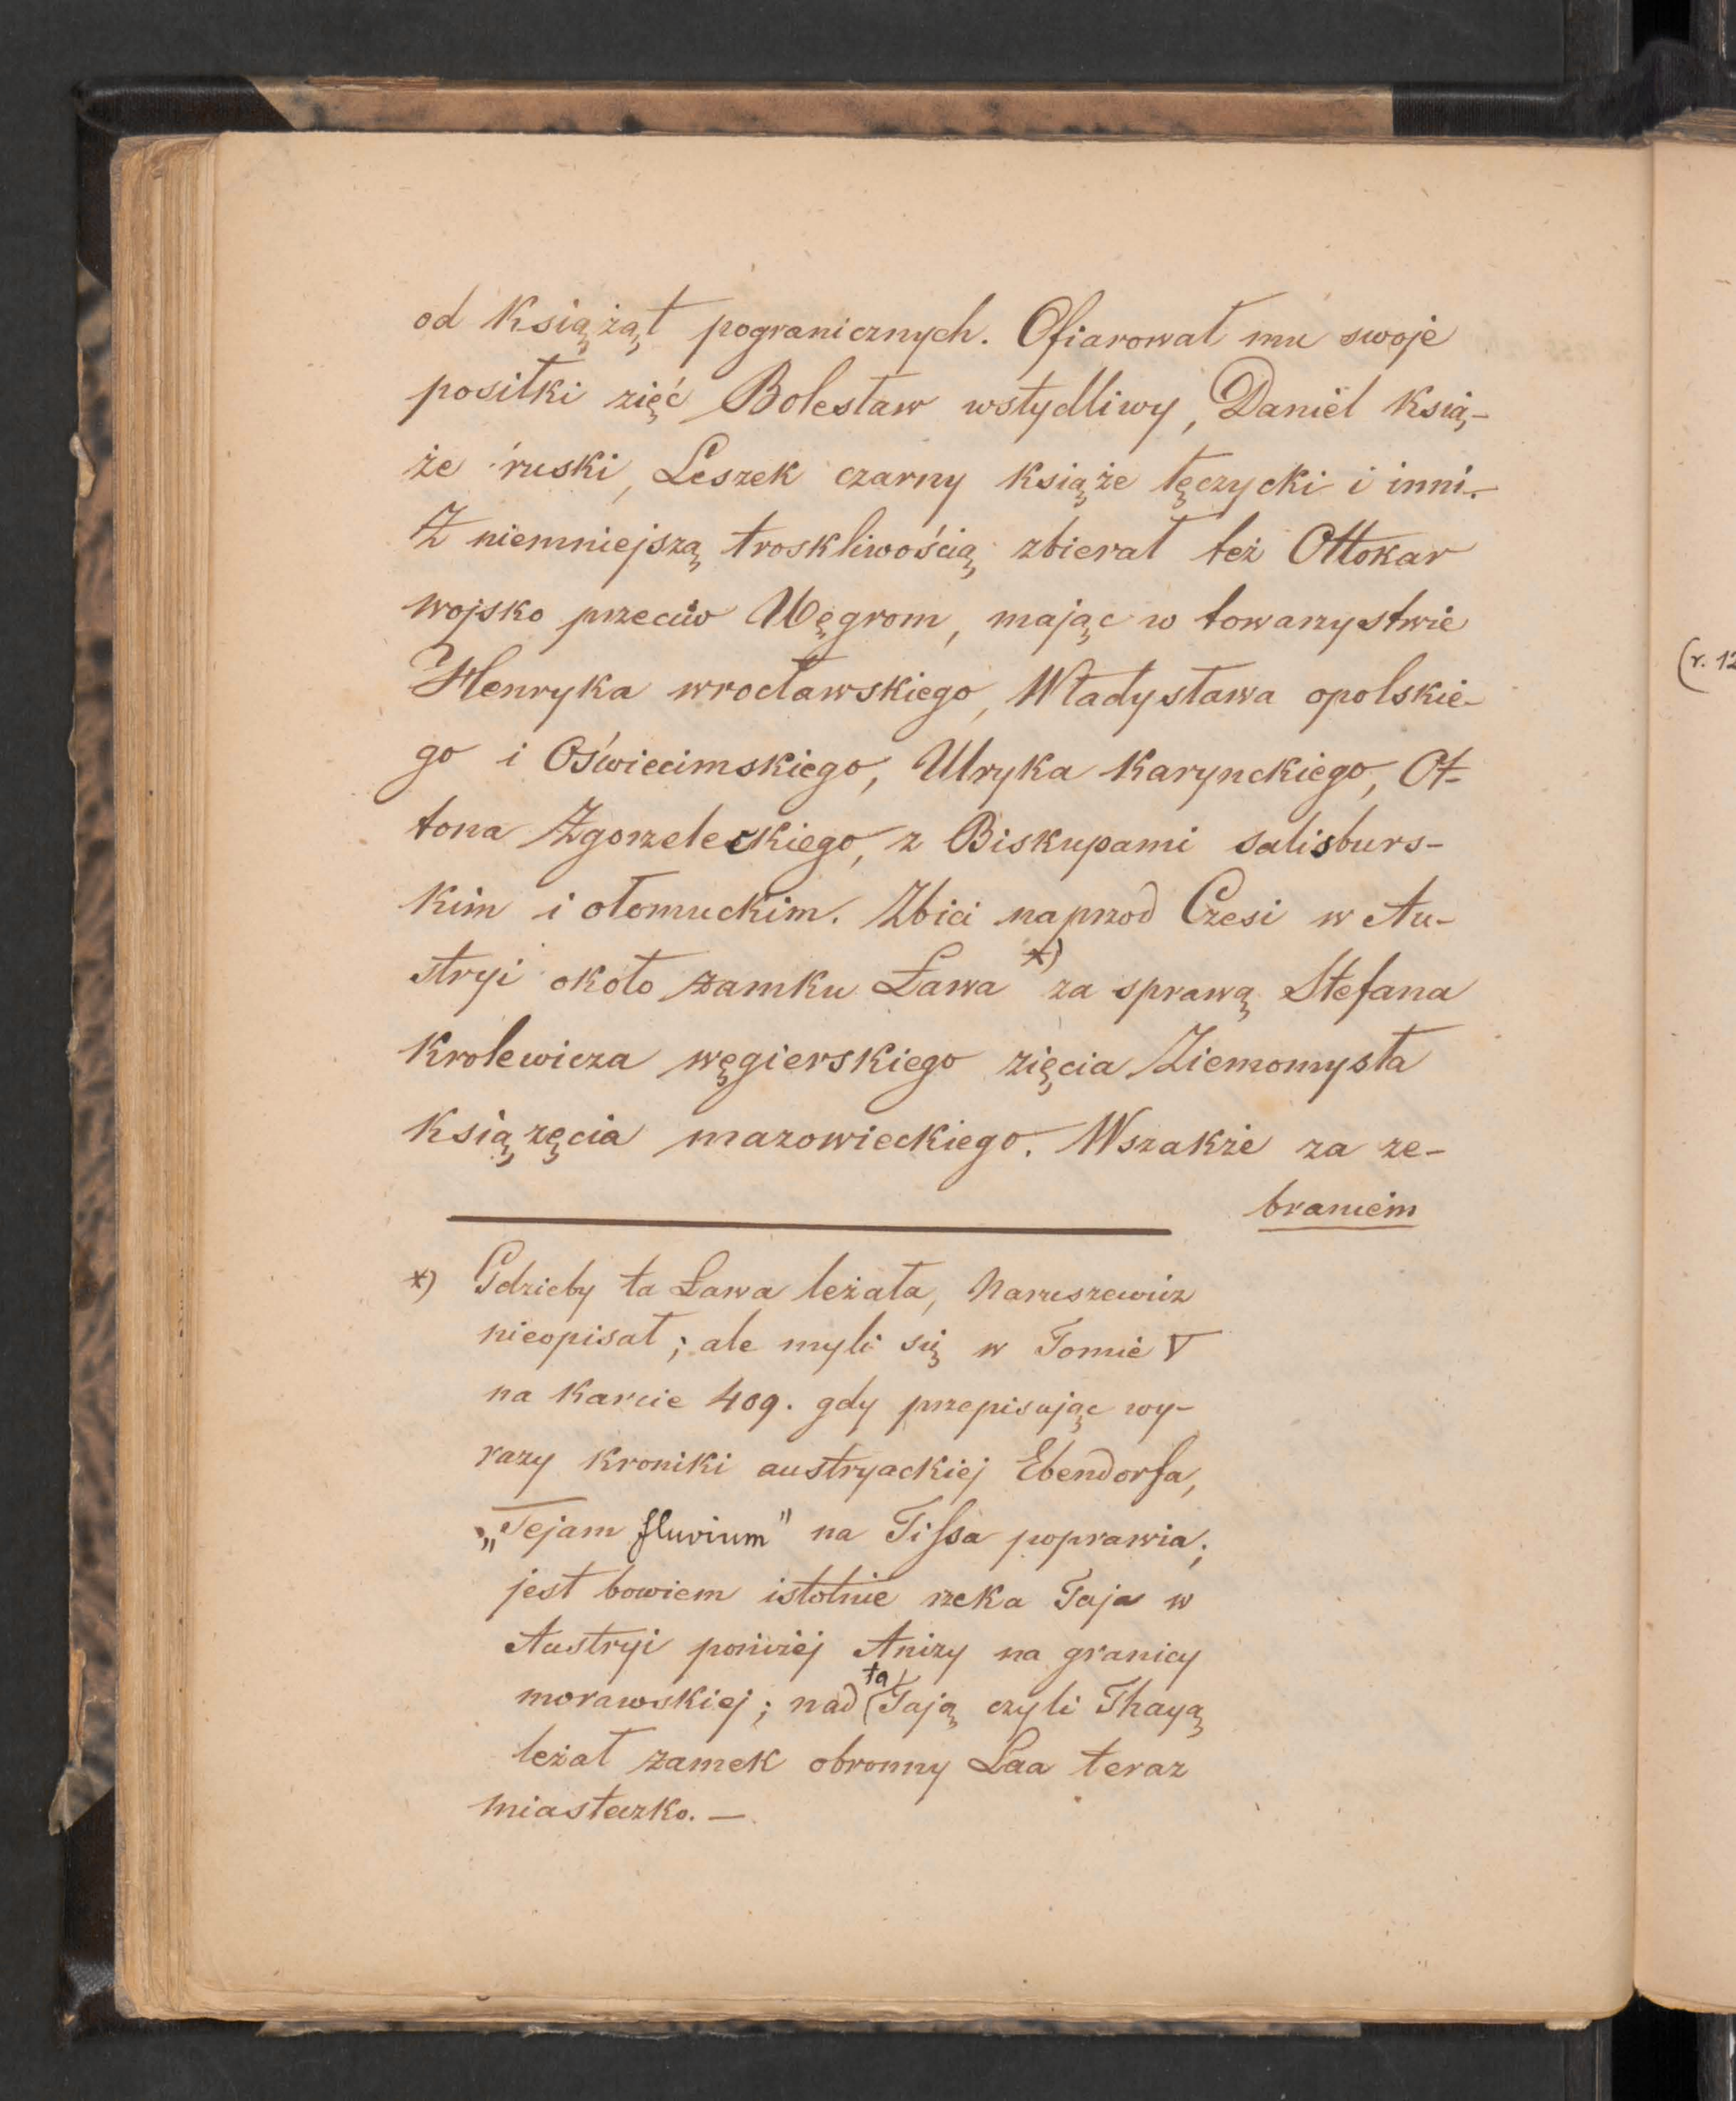 od Książąt pogranicznych. Ofiarował mu swoje
posiłki zięć Bolesław wstydliwy, Daniel Ksią-
że ruski, Leszek czarny książe łęczycki i inni.
Z niemniejszą troskliwością zbierał też Ottokar
wojsko przeciw Węgrom, mając w towarzystwie
Henryka wrocławskiego, Władysława opolskie-
go i Oświecimskiego, Ulryka Karynckiego, Ot-
tona Zgorzeleckiego, z Biskupami salisburs-
kim i ołomuckim. Zbici naprzod Czesi w Au-
stryi około zamku Ława *) za sprawą Stefana
Krolewicza węgierskiego zięcia Ziemomysła
Książęcia mazowieckiego. Wszakże za ze-
braniem
*) Gdzieby ta Ława leżała, Naruszewicz
nieopisał; ale myli się w Tomie V
na Karcie 409. gdy przepisując wy-
razy Kroniki austryackiej Ebendorfa,
„Tejam fluvium" na Tissa poprawia;
jest bowiem istotnie rzeka Taja w
Austryi poniżej Anizy na granicy
morawskiej; nad tą Tają czyli Thayą
leżał zamek obronny Laa teraz
miasteczko. —
(r. 12